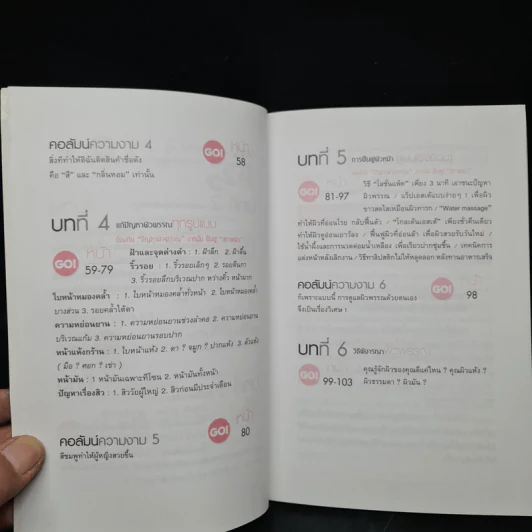 คอลัมน์ความงาม 4
สิ่งที่ทำให้ดิฉันติดสินค้าชื่อดัง
คือ "สี" และ "กลิ่นหอม" เท่านั้น
GO!
หน้า
58
บทที่ 4 แก้ปัญหาผิวพรรณ
GO!
หน้า
59-79
ฝ้าและจุดด่างดำ : 1. ฝ้าลึก 2. ฝ้าตื้น
ริ้วรอย : 1. ริ้วรอยเล็กๆ 2. รอยตีนกา
3. ริ้วรอยลึกบริเวณปาก หว่างคิ้ว หน้าผาก
ใบหน้าหมองคล้ำ : 1. ใบหน้าหมองคล้ำทั่วหน้า 2. ใบหน้าหมองคล้ำ
บางส่วน 3. รอยคล้ำใต้ตา
ความหย่อนยาน : 1. ความหย่อนยานช่วงลำคอ 2. ความหย่อนยาน
บริเวณแก้ม 3. ความหย่อนยานรอบปาก
หน้าแห้งกร้าน : 1. ใบหน้าแห้ง 2. ตา ? จมูก ? ปากแห้ง 3. ตัวแห้ง
( มือ ? ศอก ? เข่า )
หน้ามัน : 1 หน้ามันเฉพาะทีโซน 2. หน้ามันทั้งหน้า
ปัญหาเรื่องสิว : 1. สิววัยผู้ใหญ่ 2. สิวก่อนมีประจำเดือน
คอลัมน์ความงาม 5
สีชมพูทำให้ผู้หญิงสวยขึ้น
GO!
หน้า
80
บทที่ 5 การฟื้นฟูผิวหน้า
GO!
หน้า
81-97
วิธี "โลชั่นแพ็ค" เพียง 3 นาที เอาชนะปัญหา
ผิวพรรณ / แร็ปเอสเต้แบบง่ายๆ ! เพื่อผิว
ขาวสดใสเหมือนผิวทารก / "Water massage"
ทำให้ผิวที่อ่อนโรย กลับฟื้นตัว / "ไกลเด้นเอสเต้" เพียงชั่วคืนเดียว
ทำให้ผิวดูอ่อนเยาว์ลง / ฟื้นฟูผิวที่อ่อนล้า เพื่อผิวสวยรับวันใหม่ /
ใช้น้ำผึ้งและการนวดต่อมน้ำเหลือง เพื่อเรียวปากชุ่มชื้น / เทคนิคการ
แต่งหน้าหลังเลิกงาน / วิธีทาลิปสติกไม่ให้หลุดลอก หลังทานอาหารเสร็จ
คอลัมน์ความงาม 6
ที่เพราะแบบนี้ การดูแลผิวพรรณด้วยตนเอง
จึงเป็นเรื่องวิเศษ !
GO!
98
บทที่ 6 วิธีพิจารณา
GO!
99-103
คุณรู้จักผิวของคุณดีแค่ไหน ? คุณผิวแห้ง ?
ผิวธรรมดา ? ผิวมัน ?